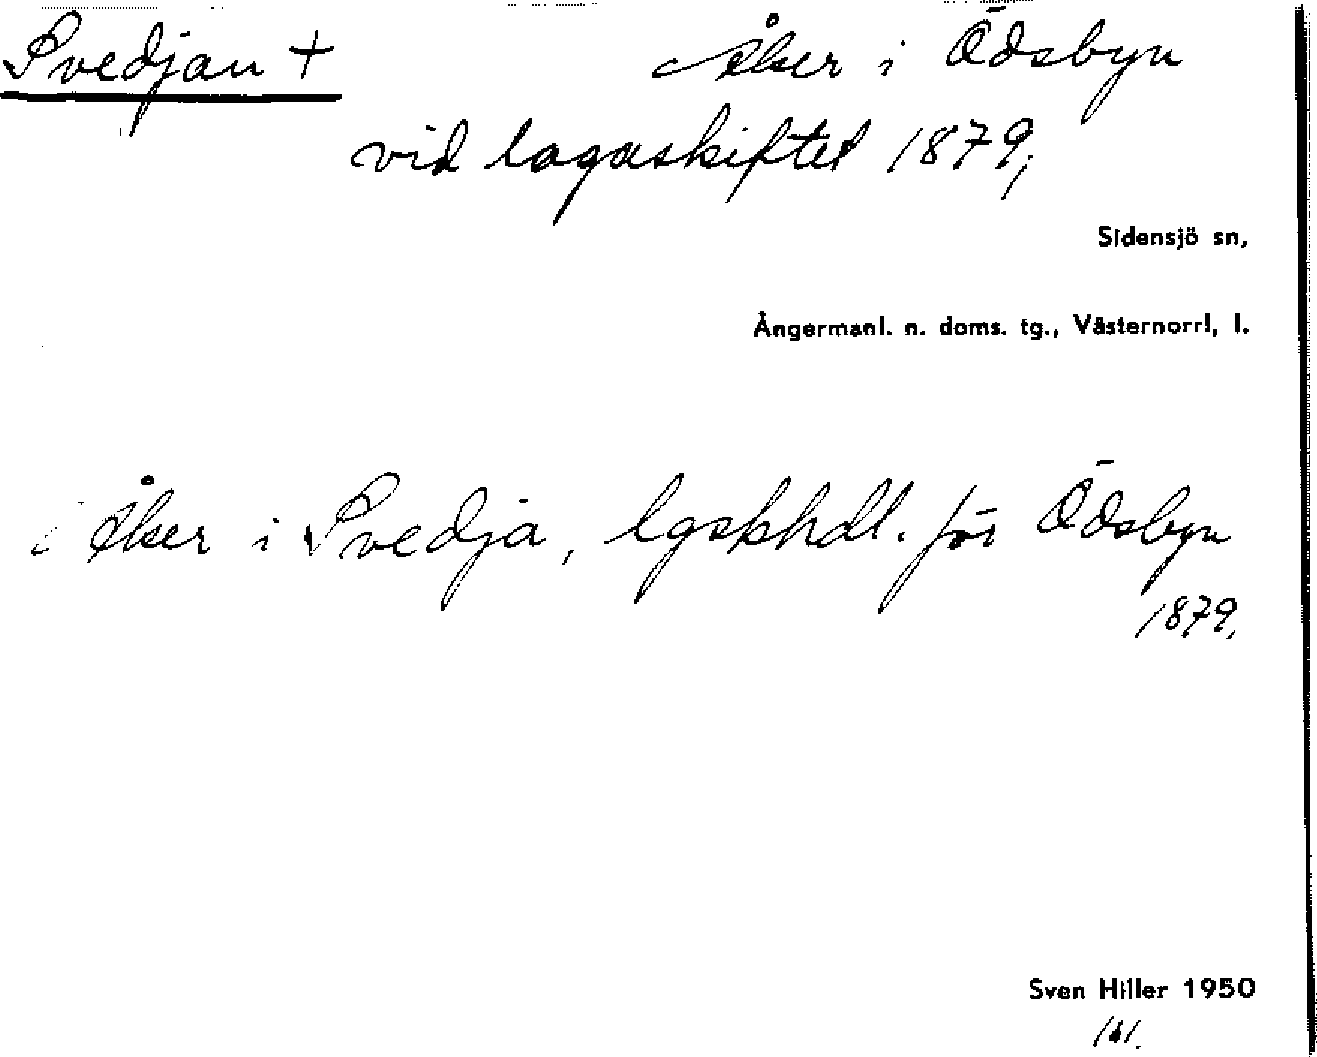 Svedjan + Åker i Ödsbyn
vid lagaskiftet 1879;
Sidensjö sn,
Ångermanl. n. doms. tg., Västernorrl, l.
Åker i Svedja, lgskhdl. för Ödsbyn
1879.
Sven Hiller 1950